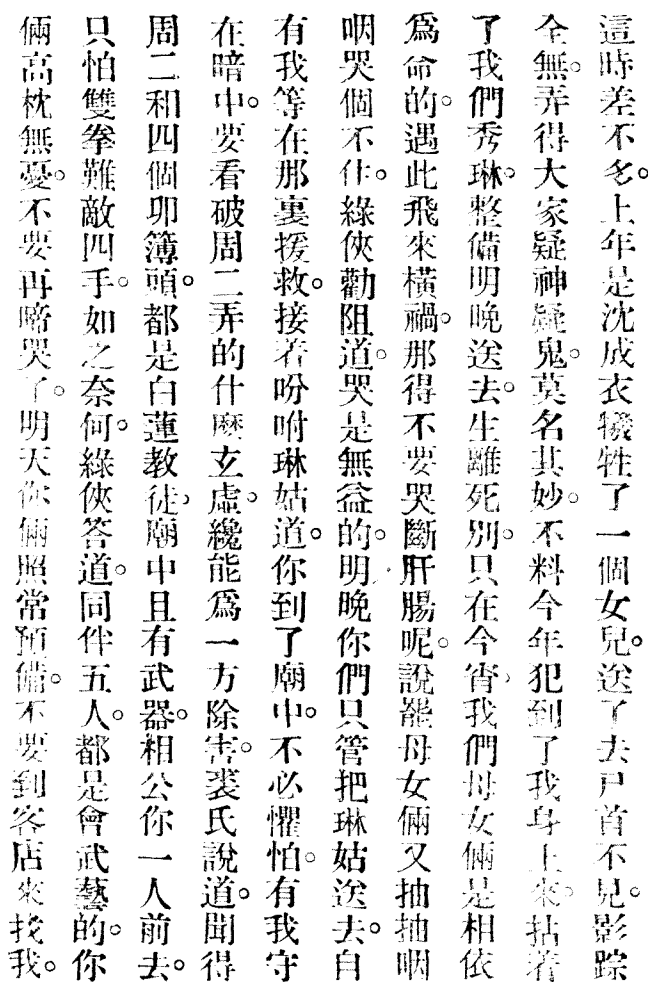 這時差不多。上年是沈成衣犧牲了一個女兒。送了去尸首不見。影踪
全無。弄得大家疑神疑鬼。莫名其妙。不料今年犯到了我身上來。拈着
了我們秀琳。整備明晚送去。生離死別。只在今宵、我們母女倆是相依
爲命的。遇此飛來橫禍。那得不要哭斷肝腸呢。說罷母女倆又抽抽咽
咽哭個不住。綠俠勸阻道。哭是無益的。明晚你們只管把琳姑送去。自
有我等在那裏援救。接着吩咐琳姑道。你到了廟中。不必懼怕。有我守
在暗中。要看破周二弄的什麽玄虛。纔能爲一方除害。裘氏說道。聞得
周二和四個卯簿頭。都是白蓮教徒、廟中且有武器。相公你一人前去。
只怕雙拳難敵四手。如之奈何。綠俠答道。同伴五人。都是會武藝的。你
倆高枕無憂。不要再啼哭了。明天你倆照常預備。不要到客店來找我。